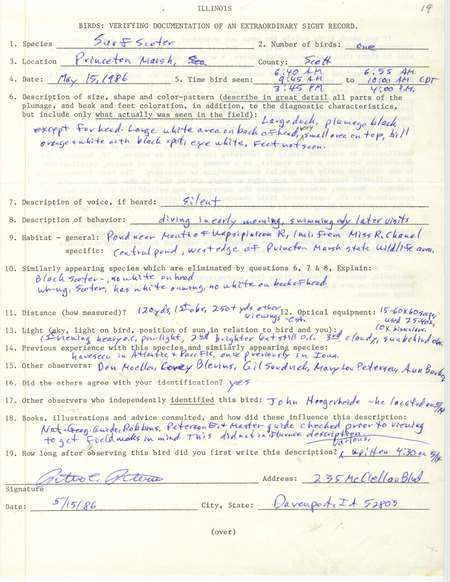 ILLINOIS
19
BIRDS: VERIFYING DOCUMENTATION OF AN EXTRAORDINARY SIGHT RECORD.
1. Species Surf Scoter 2. Number of birds: one
3. Location Princeton Marsh, County: Scott
6:40 AM 6:55 AM
4. Date: May 15, 1986 5. Time bird seen: 9:45 AM to 10:00 AM CDT
3:45 PM 4:00 PM.
6. Description of size, shape and color-pattern (describe in great detail all parts of the
plumage, and beak and feet coloration, in addition, to the diagnostic characteristics,
but include only what actually was seen in the field): Large duck, plumage black
except for head. Large white area on back of head, small area on top, bill
orange & white with black spot; eye white. Feet not seen.
7. Description of voice, if heard: silent
8. Description of behavior: diving in early morning, swimming only later visits
9. Habitat - general: Pond near Mouth of Wapsipinicon R, 1 mi. from Miss R. Chanel
specific: Central pond, west edge of Princeton Marsh state Wildlife area.
10. Similarly appearing species which are eliminated by questions 6, 7 & 8, Explain:
Black Scoter - no white on head
W-wing. Scoter, has white on wing; no white on back of head
11. Distance (how measured)? 120 yds, 1st obs, 250+ yds other viewings - est. 12. Optical equipment: 15-60x60 scope, used 25-40x,
10x binoculars.
13. Light (sky, light on bird, position of sun in relation to bird and you):
1st viewing heavy o.c, poor light, 2nd brighter but still o.c. 3rd cloudy, sun behind obs.
14. Previous experience with this species and similarly appearing species:
have seen in Atlantic & Pacific, once previously in Iowa.
15. Other observers: Don Moeller, Corey Blevins, Gil Sandvich, Mary Lou Petersen, Ann Barker
16. Did the others agree with your identification? yes
17. Other observers who independently identified this bird: John Hoogerheide - he located on 5/14
18. Books, illustrations and advice consulted, and how did these influence this description:
Nat. Geog. Guide, Robbins, Peterson E. & Master guide checked prior to viewing
to get field marks in mind This did not influence description
19. How long after observing this bird did you first write this description? various, written 4:30 on 5/15
Signature Address: 235 McClellan Blvd
Date: 5/15/86 City, State: Davenport, IA 52803
(over)